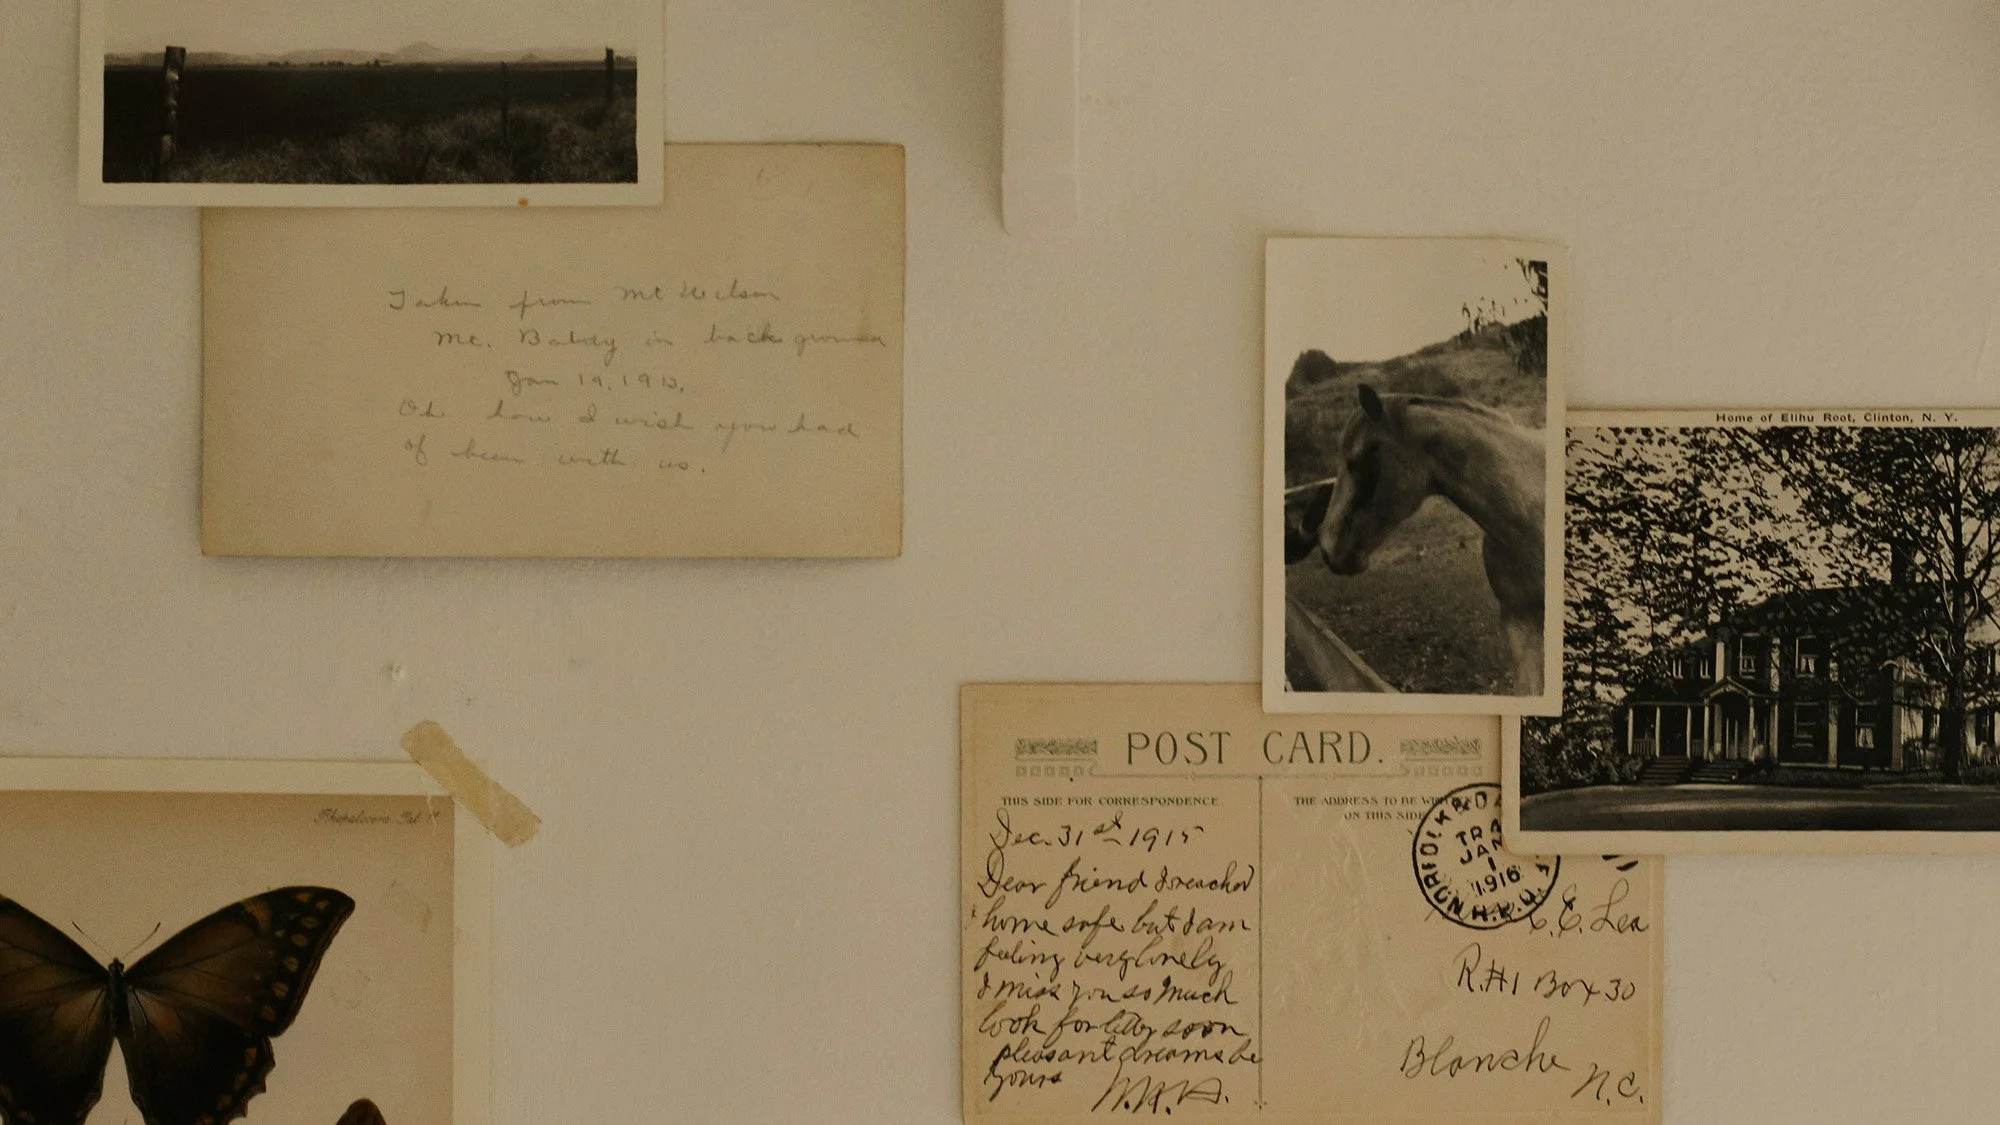 Taken from Mt Wilson
Mt. Baldy in back ground
Jan 19, 1913.
Oh how I wish you had
of been with us.
Home of Elihu Root, Clinton, N. Y.
POST CARD.
THIS SIDE FOR CORRESPONDENCE
THE ADDRESS TO BE
ON THIS SIDE
Dec. 31st 1915
Dear friend I reached
home safe but I am
feeling very lonely
I miss you so much
look for letter soon
pleasant dreams be
yours
W.H.H.
JAN
1
1916
C. E. Lea
R.#1 Box 30
Blanche
N.C.